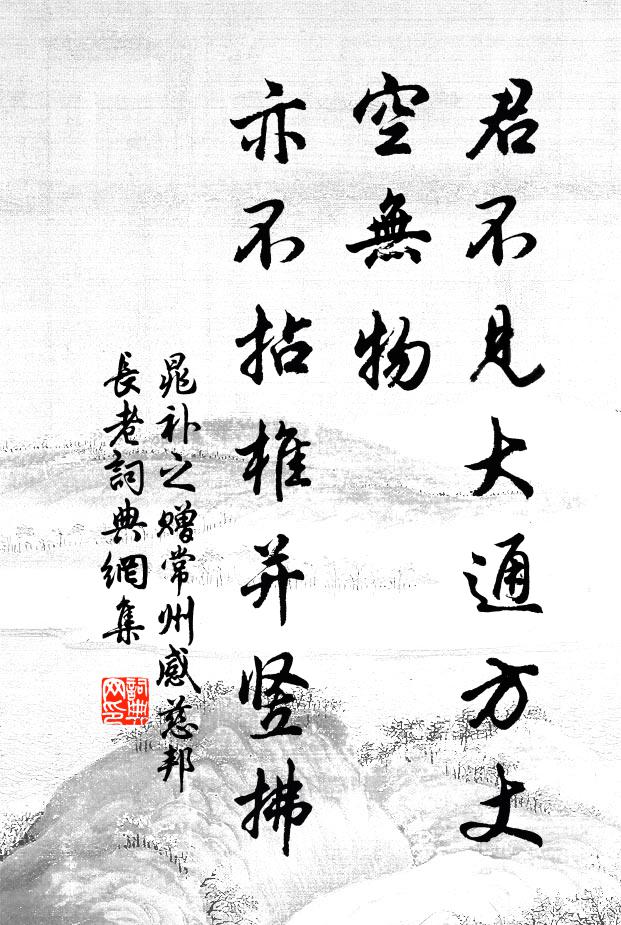 君不見大通方丈
空無物
亦不拈椎并竖拂
晁补之贈常州感慈邦
長老詞典網集
詞典
网印